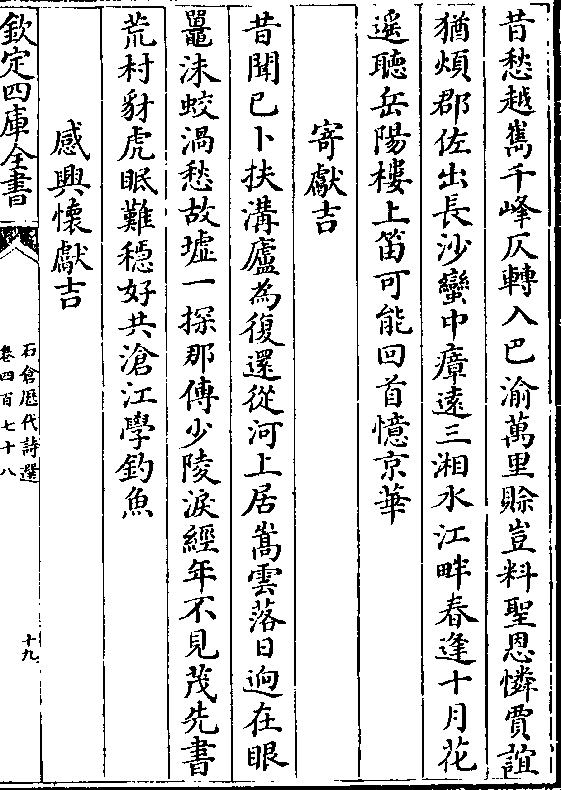 昔愁越嶲千峰仄轉入巴渝萬里賒豈料聖恩憐賈誼
猶煩郡佐出長沙蠻中瘴遠三湘水江畔春逢十月花
遥聽岳陽樓上笛可能回首憶京華
寄獻吉
昔聞已卜扶溝廬為復還從河上居嵩雲落日逈在眼
鼉沬蛟渦愁故墟一探那傳少陵淚經年不見茂先書
荒村豺虎眠難穏好共滄江學釣魚
感興懷獻吉
欽定四庫全書
石倉歴代詩選
卷四百七十八
十九